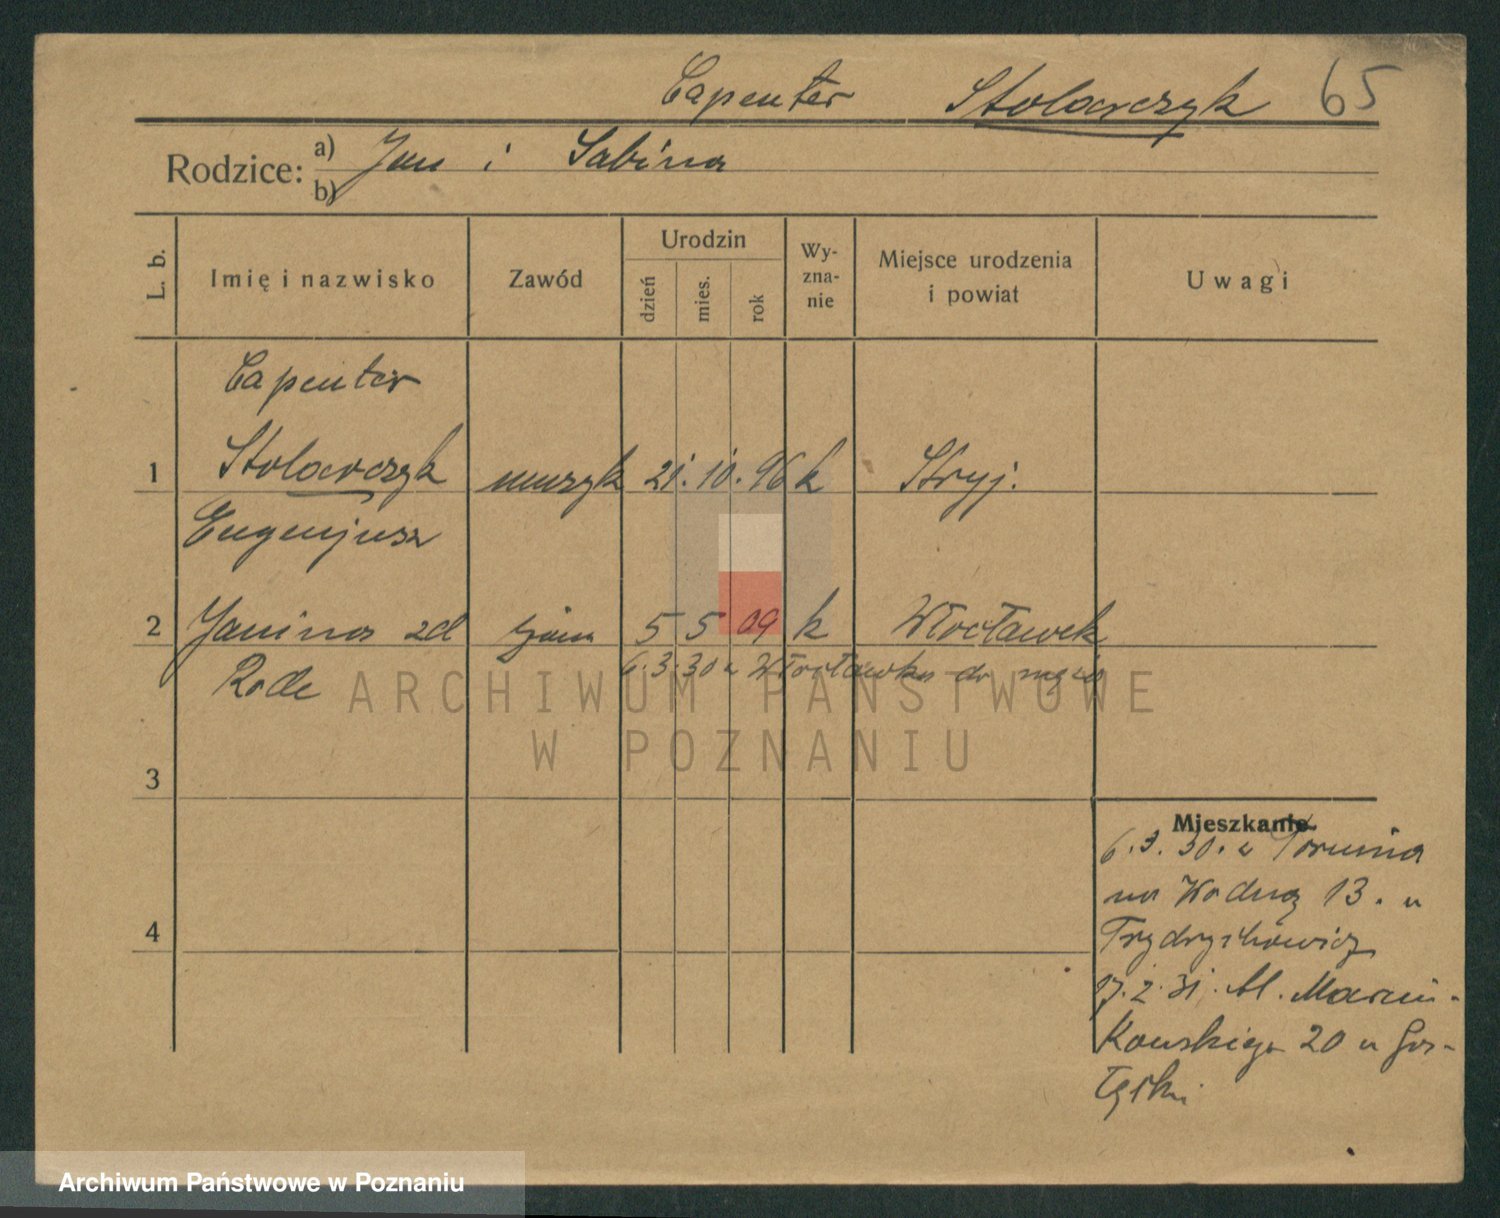 Capenter Stolarczyk 65
Rodzice: a) Jan i Sabina
b)
L. b. Imię i nazwisko Zawód Urodzin dzień mies. rok Wy-zna-nie Miejsce urodzenia i powiat Uwagi
Capenter
1 Stolarczyk muzyk 21. 10. 96 k Stryj.
Eugenjusz
2 Janina zd żona 5 5 09 k Włocławek
Rode 6.3.30 z Włocławka do męża
ARCHIWUM PAŃSTWOWE
W POZNANIU
3
Mieszkanie.
6.3.30. z Torunia
na Wodną 13. u
4
17.2.31. Al. Marcin-
kowskiego 20 u
Archiwum Państwowe w Poznaniu